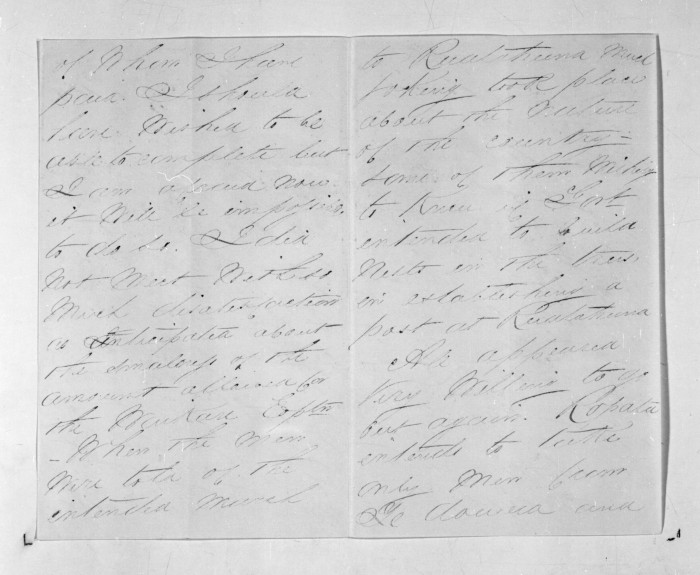 of Whom I have
paid. I should
have Wished to be
able to complete but
I am afraid now
it Will be impossible
to do so. I did
not Meet With so
Much dissatisfaction
as anticipated about
the smallness of the
amount allowed for
the Waikare Expn
- When the Men
Were told of the
intended March
to Ruatahuna Much
joking took place
about the Nature
of the country -
some of them Wishing
to know if Govt
intended to build
Nests in the trees
in establishing a
post at Ruatahuna
- All appeared
Very Willing to go
but again. Ropata
intends to take
only Men from
and